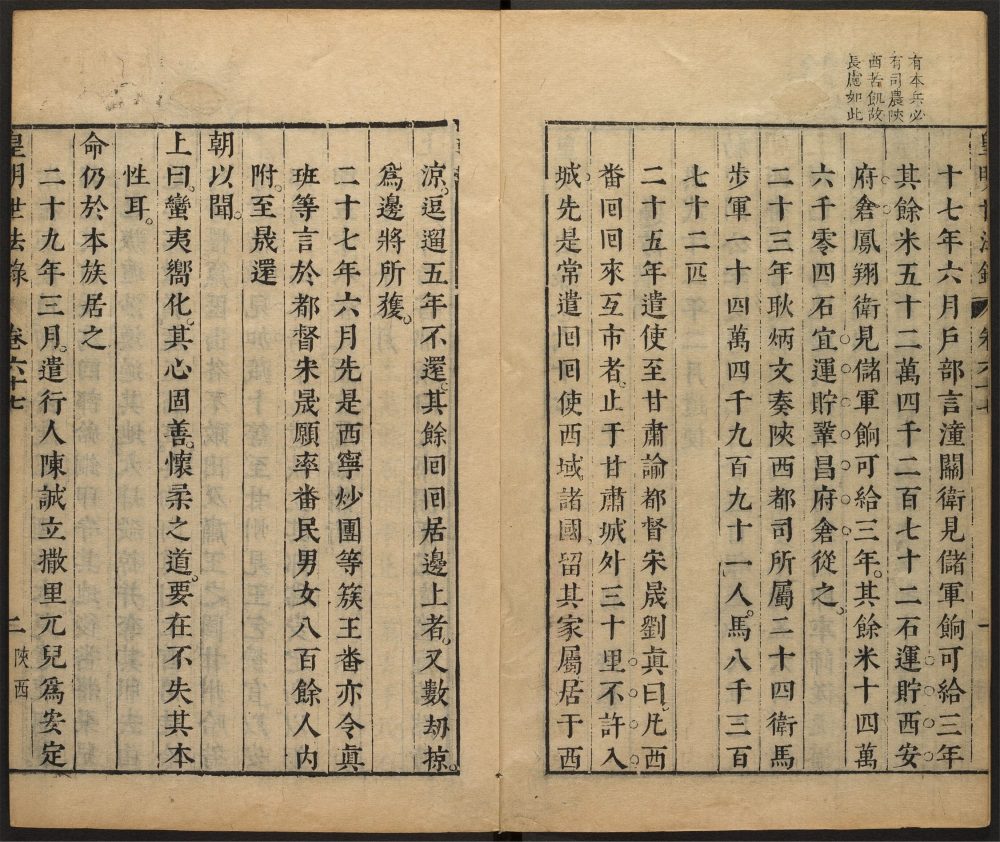 有本兵必
有司農陝
西苦飢故
長慮如此
十七年六月戶部言潼關衛見儲軍餉可給三年
其餘米五十二萬四千二百七十二石運貯西安
府倉鳳翔衛見儲軍餉可給三年其餘米十四萬
六千零四石宜運貯鞏昌府倉從之
二十三年耿炳文奏陝西都司所屬二十四衛馬
步軍一十四萬四千九百九十一人馬八千三百
七十二匹
二十五年遣使至甘肅諭都督宋晟劉真曰凡西
番回回來互市者止于甘肅城外三十里不許入
城先是常遣回回使西域諸國留其家屬居于西
涼逗遛五年不還其餘回回居邊上者又數刼掠
爲邊將所獲
二十七年六月先是西寧炒團等簇王番亦令真
班等言於都督宋晟願率番民男女八百餘人內
附至晟還
朝以聞
上曰蠻夷嚮化其心固善懷柔之道要在不失其本
性耳
命仍於本族居之
二十九年三月遣行人陳誠立撒里兀兒爲安定
皇明世法錄 卷六十七 二 陝西